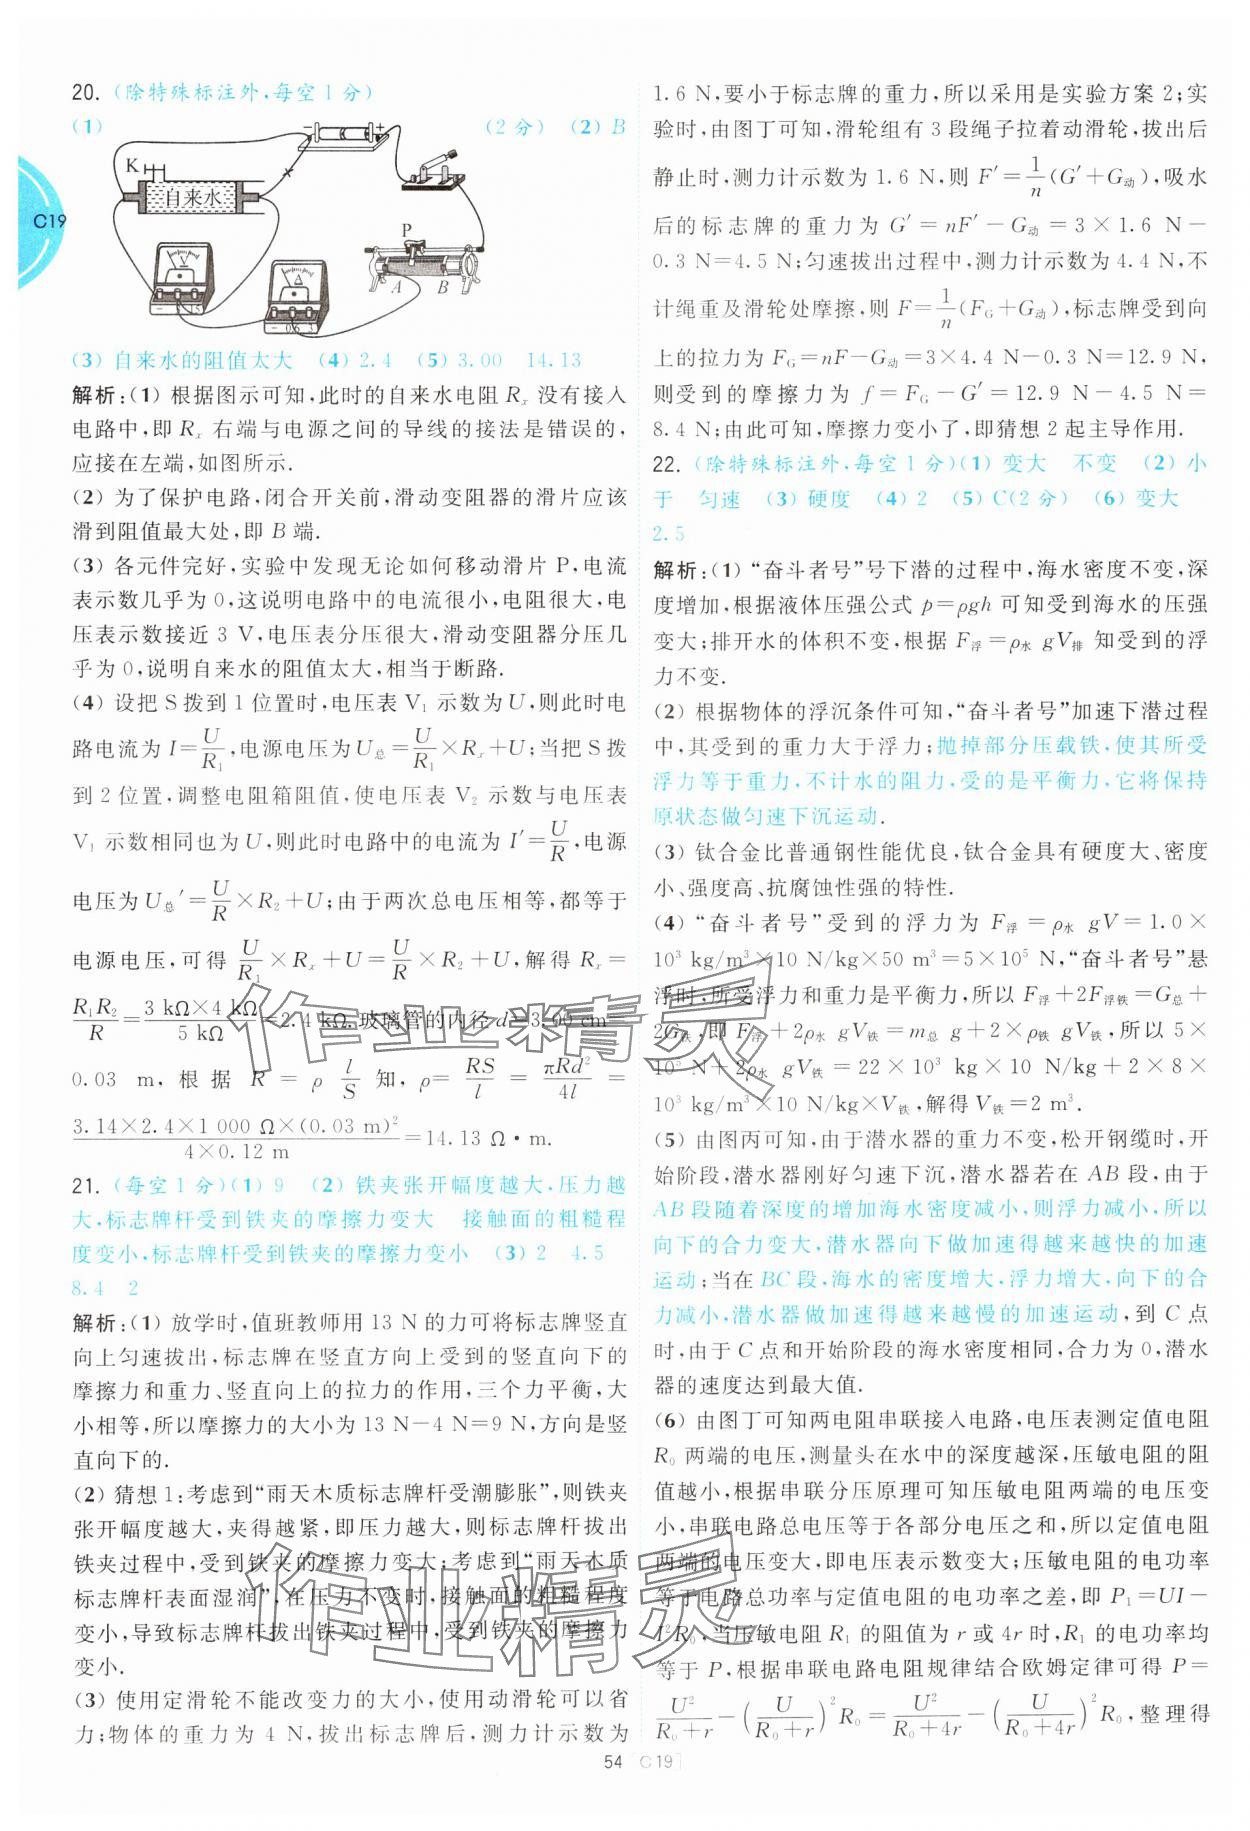 20. (除特殊标注外,每空1分)
(1) (2分) (2) B
K
自来水
P
A B
C19
(3) 自来水的阻值太大 (4) 2.4 (5) 3.00 14.13
解析:(1) 根据图示可知,此时的自来水电阻 Rₓ 没有接入
电路中,即 Rₓ 右端与电源之间的导线的接法是错误的,
应接在左端,如图所示.
(2) 为了保护电路,闭合开关前,滑动变阻器的滑片应该
滑到阻值最大处,即 B 端.
(3) 各元件完好,实验中发现无论如何移动滑片 P,电流
表示数几乎为 0,这说明电路中的电流很小,电阻很大,电
压表示数接近 3 V,电压表分压很大,滑动变阻器分压几
乎为 0,说明自来水的阻值太大,相当于断路.
(4) 设把 S 拨到 1 位置时,电压表 V₁ 示数为 U,则此时电
路电流为 I=U/R₁,电源电压为 U总=U/R₁×Rₓ+U;当把 S 拨
到 2 位置,调整电阻箱阻值,使电压表 V₂ 示数与电压表
V₁ 示数相同也为 U,则此时电路中的电流为 I′=U/R,电源
电压为 U总′=U/R×R₂+U;由于两次总电压相等,都等于
电源电压,可得 U/R₁×Rₓ+U=U/R×R₂+U,解得 Rₓ=
R₁R₂/R=3 kΩ×4 kΩ/5 kΩ=2.4 kΩ.玻璃管的内径 d=3.00 cm=
0.03 m,根据 R=ρ l/S 知,ρ=RS/l=πRd²/4l=
3.14×2.4×1 000 Ω×(0.03 m)²/4×0.12 m=14.13 Ω·m.
21. (每空1分)(1) 9 (2) 铁夹张开幅度越大,压力越
大,标志牌杆受到铁夹的摩擦力变大 接触面的粗糙程
度变小,标志牌杆受到铁夹的摩擦力变小 (3) 2 4.5
8.4 2
解析:(1) 放学时,值班教师用 13 N 的力可将标志牌竖直
向上匀速拔出,标志牌在竖直方向上受到的竖直向下的
摩擦力和重力、竖直向上的拉力的作用,三个力平衡,大
小相等,所以摩擦力的大小为 13 N−4 N=9 N,方向是竖
直向下的.
(2) 猜想 1:考虑到“雨天木质标志牌杆受潮膨胀”,则铁夹
张开幅度越大,夹得越紧,即压力越大,则标志牌杆拔出
铁夹过程中,受到铁夹的摩擦力变大;考虑到“雨天木质
标志牌杆表面湿润”,在压力不变时,接触面的粗糙程度
变小,导致标志牌杆拔出铁夹过程中,受到铁夹的摩擦力
变小.
(3) 使用定滑轮不能改变力的大小,使用动滑轮可以省
力;物体的重力为 4 N,拔出标志牌后,测力计示数为
1.6 N,要小于标志牌的重力,所以采用是实验方案 2;实
验时,由图丁可知,滑轮组有 3 段绳子拉着动滑轮,拔出后
静止时,测力计示数为 1.6 N,则 F′=1/n(G′+G动),吸水
后的标志牌的重力为 G′=nF′−G动=3×1.6 N−
0.3 N=4.5 N;匀速拔出过程中,测力计示数为 4.4 N,不
计绳重及滑轮处摩擦,则 F=1/n(F_G+G动),标志牌受到向
上的拉力为 F_G=nF−G动=3×4.4 N−0.3 N=12.9 N,
则受到的摩擦力为 f=F_G−G′=12.9 N−4.5 N=
8.4 N;由此可知,摩擦力变小了,即猜想 2 起主导作用.
22. (除特殊标注外,每空1分)(1) 变大 不变 (2) 小
于 匀速 (3) 硬度 (4) 2 (5) C(2分) (6) 变大
2.5
解析:(1) “奋斗者号”号下潜的过程中,海水密度不变,深
度增加,根据液体压强公式 p=ρgh 可知受到海水的压强
变大;排开水的体积不变,根据 F浮=ρ水 gV排 知受到的浮
力不变.
(2) 根据物体的浮沉条件可知,“奋斗者号”加速下潜过程
中,其受到的重力大于浮力;抛掉部分压载铁,使其所受
浮力等于重力,不计水的阻力,受的是平衡力,它将保持
原状态做匀速下沉运动.
(3) 钛合金比普通钢性能优良,钛合金具有硬度大、密度
小、强度高、抗腐蚀性强的特性.
(4) “奋斗者号”受到的浮力为 F浮=ρ水 gV=1.0×
10³ kg/m³×10 N/kg×50 m³=5×10⁵ N,“奋斗者号”悬
浮时,所受浮力和重力是平衡力,所以 F浮+2F浮铁=G总+
2G铁,即 F浮+2ρ水 gV铁=m总 g+2×ρ铁 gV铁,所以 5×
10⁵ N+2ρ水 gV铁=22×10³ kg×10 N/kg+2×8×
10³ kg/m³×10 N/kg×V铁,解得 V铁=2 m³.
(5) 由图丙可知,由于潜水器的重力不变,松开钢缆时,开
始阶段,潜水器刚好匀速下沉,潜水器若在 AB 段,由于
AB 段随着深度的增加海水密度减小,则浮力减小,所以
向下的合力变大,潜水器向下做加速得越来越快的加速
运动;当在 BC 段,海水的密度增大,浮力增大,向下的合
力减小,潜水器做加速得越来越慢的加速运动,到 C 点
时,由于 C 点和开始阶段的海水密度相同,合力为 0,潜水
器的速度达到最大值.
(6) 由图丁可知两电阻串联接入电路,电压表测定值电阻
R₀ 两端的电压,测量头在水中的深度越深,压敏电阻的阻
值越小,根据串联分压原理可知压敏电阻两端的电压变
小,串联电路总电压等于各部分电压之和,所以定值电阻
两端的电压变大,即电压表示数变大;压敏电阻的电功率
等于电路总功率与定值电阻的电功率之差,即 P₁=UI−
I²R₀,当压敏电阻 R₁ 的阻值为 r 或 4r 时,R₁ 的电功率均
等于 P,根据串联电路电阻规律结合欧姆定律可得 P=
U²/(R₀+r)−(U/(R₀+r))²R₀=U²/(R₀+4r)−(U/(R₀+4r))²R₀,整理得
作业精灵
作业精灵
54 C19